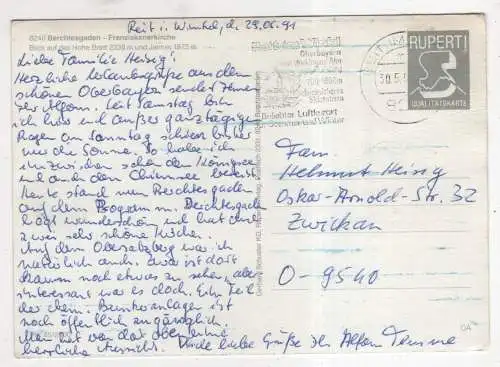 Reit i. Winkl, d. 29.05.91
8240 Berchtesgaden - Franziskanerkirche
Blick auf das Hohe Brett 2338 m und Jenner 1875 m
Liebe Familie Heisig!
Herzliche Urlaubsgrüße aus dem
schönen Oberbayern sendet Ihnen
Alfons. Seit Samstag bin
ich hier und außer ganztägigen
Regen am Sonntag schien bisher
nur die Sonne. So habe ich
inzwischen schon den Königsee
und auch den Chiemsee bereist.
Heute stand nun Berchtesgaden
auf dem Program. Berchtesgaden
liegt wunderschön und hat auch
zwei sehr schöne Kirchen.
Auf dem Obersalzberg war ich
natürlich auch. Zwar ist dort
kaum noch etwas zu sehen, aber
interessant war es doch. Ein Teil
der ehem. Bunkeranlagen ist
noch öffentlich zugänglich.
Man hat von dort oben eine
herrliche Aussicht. Viele liebe Grüße Ihr Alfons
Oberbayern
Beliebter Luftkurort
Sommer und Winter
RUPERTI
QUALITÄTSKARTE
Fam.
Helmut Heisig
Oskar-Arnold-Str. 32
Zwickau
O-9540